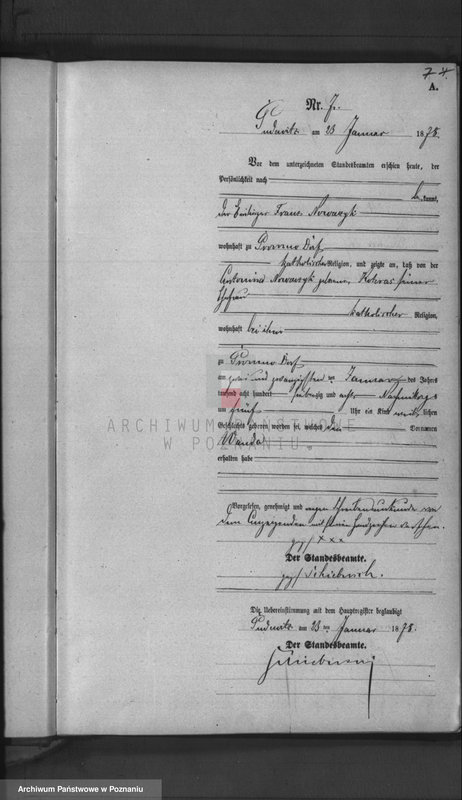 74.
A.
Nr. 7.
Pudewitz am 23 Januar 1878.
Vor dem unterzeichneten Standesbeamten erschien heute, der
Persönlichkeit nach
be kannt,
der Franz Nowaczyk
wohnhaft zu Promno Dorf
katholischer Religion, und zeigte an, daß von der
Nowaczyk geborene seiner
Ehefrau
katholischer Religion,
wohnhaft bei ihm
zu Promno Dorf
am zwei und zwanzigsten ten Januar des Jahres
tausend acht hundert siebenzig und acht Nachmittags
um fünf Uhr ein Kind weiblichen
Geschlechts geboren worden sei, welches den Vornamen
Wanda
erhalten habe
Vorgelesen, genehmigt und wegen Schreibensunkunde von
dem Anzeigenden mit seinem Handzeichen versehen.
gez/ xxx
Der Standesbeamte.
gez/
Die Uebereinstimmung mit dem Hauptregister beglaubigt
Pudewitz am 23 ten Januar 1878.
Der Standesbeamte.
ARCHIWUM PAŃSTWOWE
W POZNANIU.
Archiwum Państwowe w Poznaniu